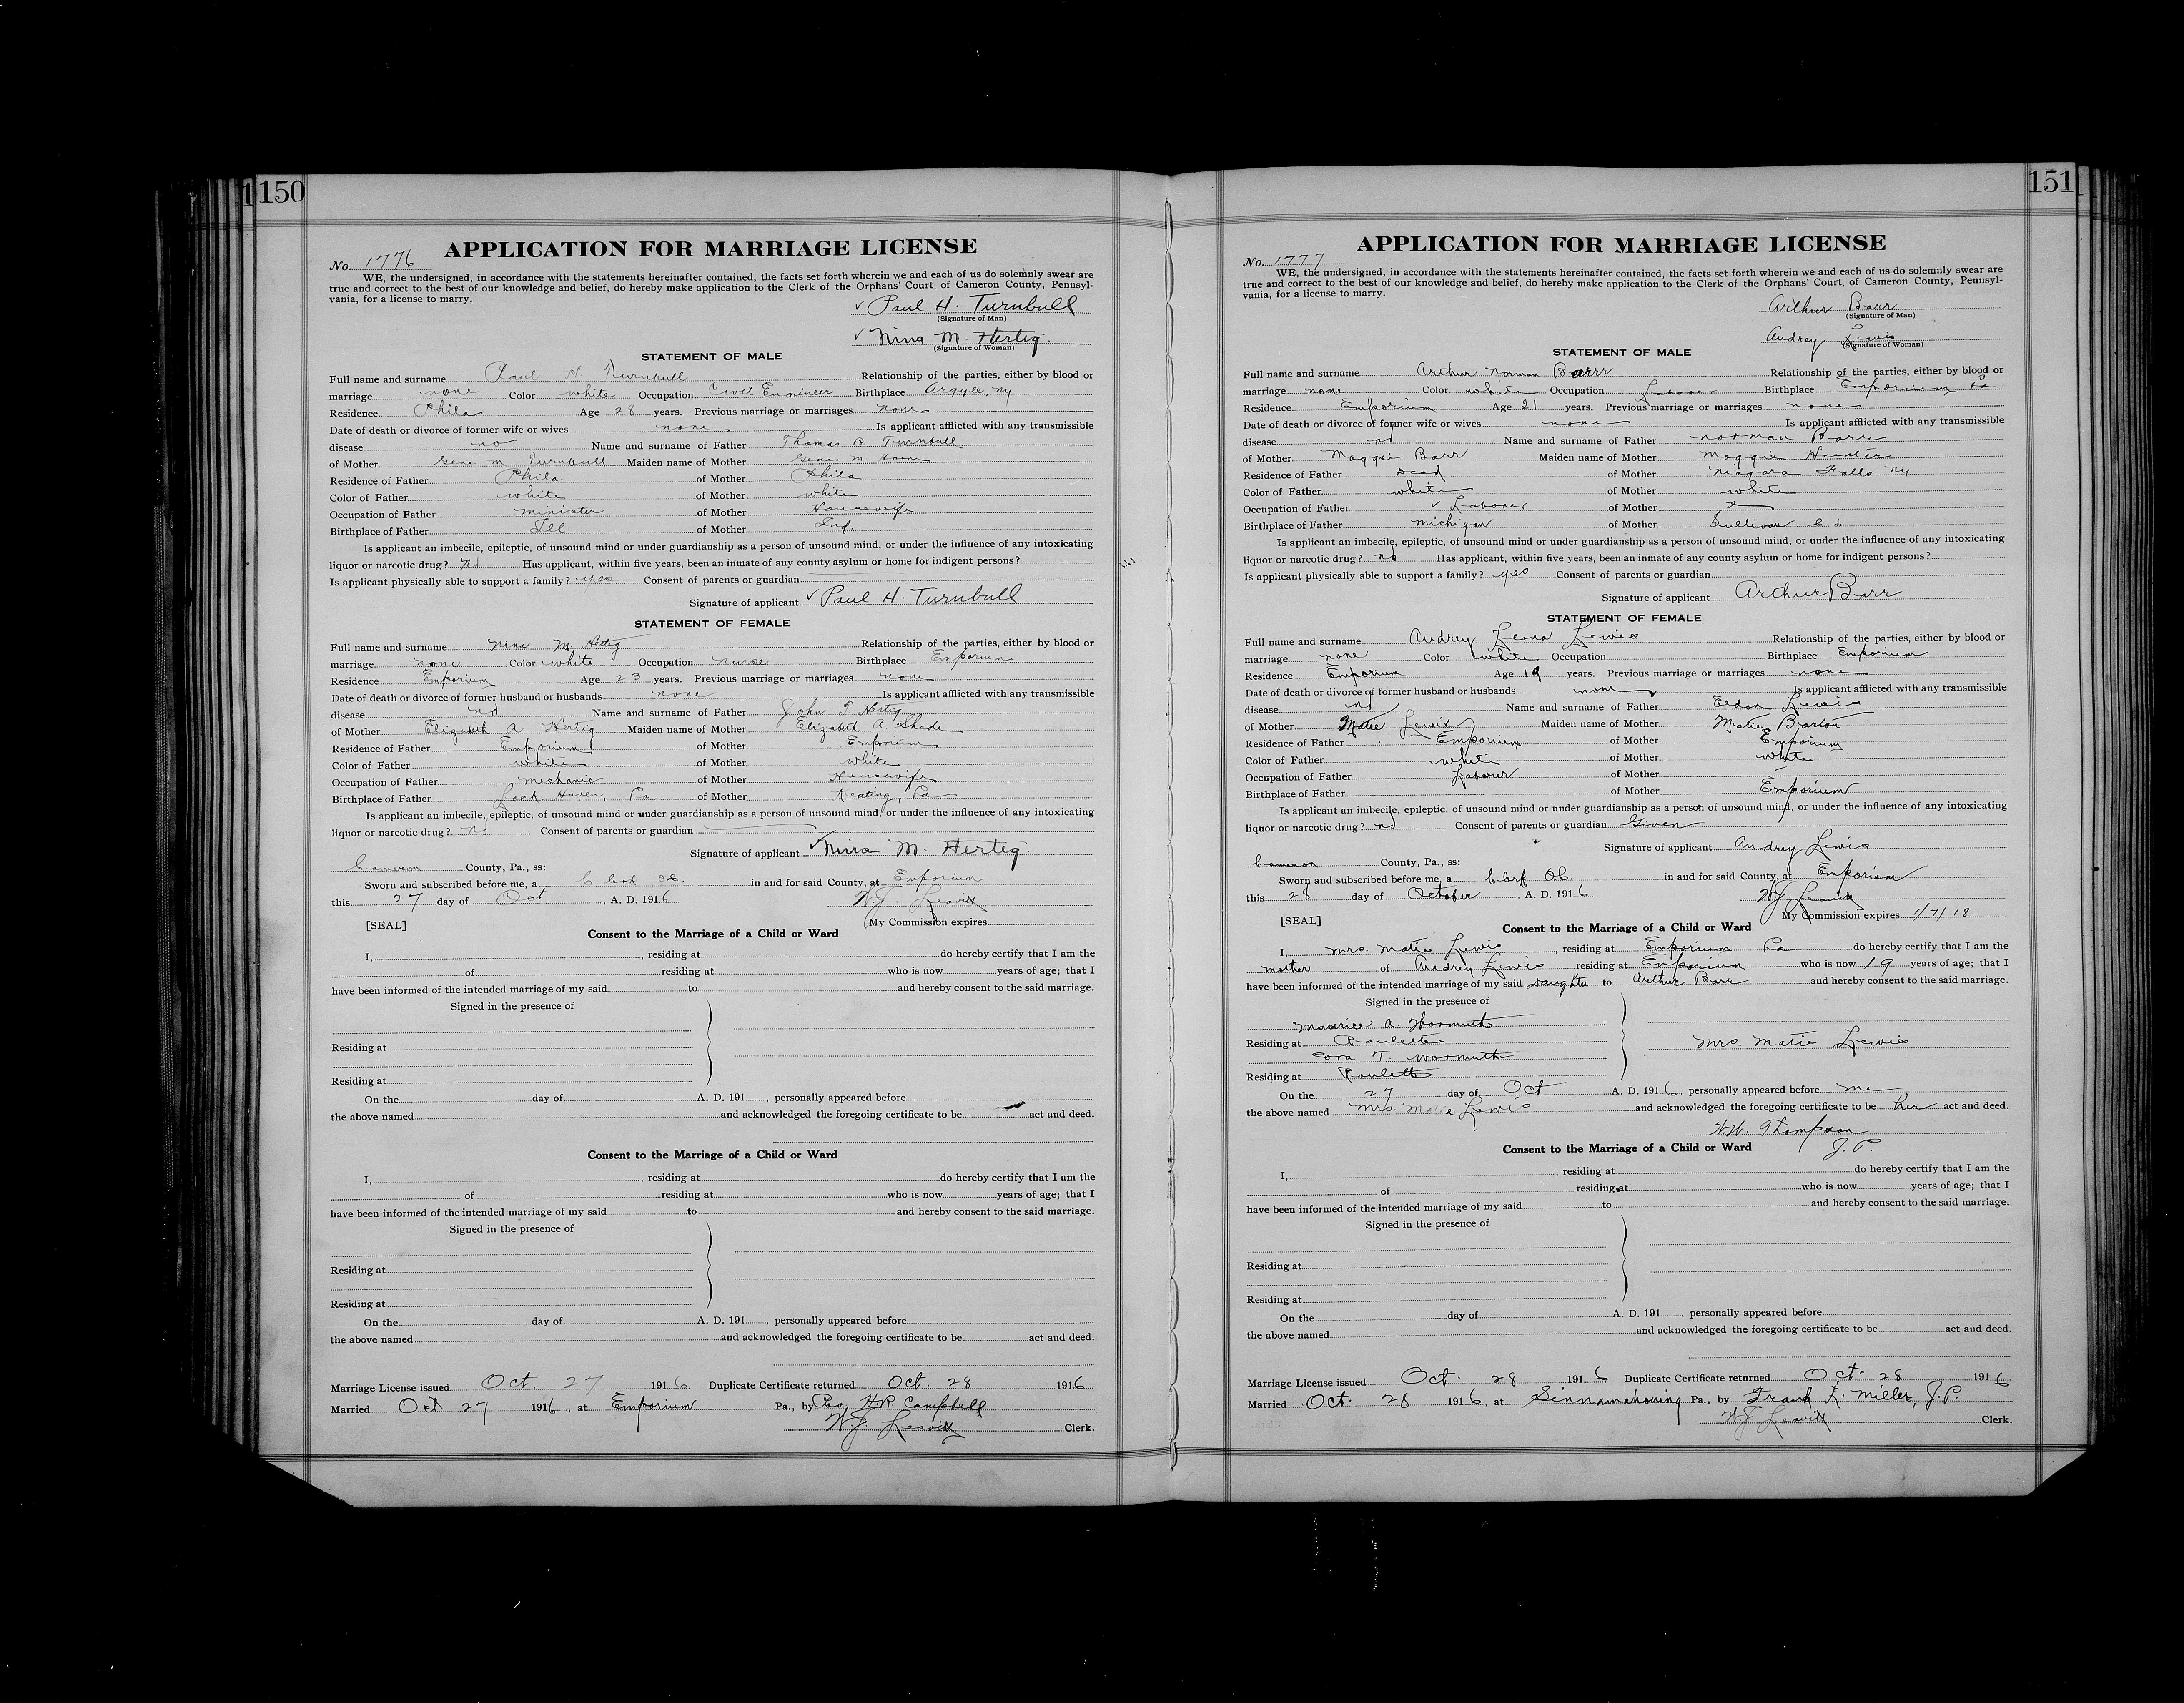 150
APPLICATION FOR MARRIAGE LICENSE
No. 1776
WE, the undersigned, in accordance with the statements hereinafter contained, the facts set forth wherein we and each of us do solemnly swear are
true and correct to the best of our knowledge and belief, do hereby make application to the Clerk of the Orphans' Court, of Cameron County, Pennsyl-
vania, for a license to marry.
Paul H. Turnbull
(Signature of Man)
Nina M. Hertig
(Signature of Woman)
STATEMENT OF MALE
Full name and surname Paul H Turnbull Relationship of the parties, either by blood or
marriage none Color white Occupation Civil Engineer Birthplace Argyle, Ny
Residence Phila Age 28 years. Previous marriage or marriages none
Date of death or divorce of former wife or wives none Is applicant afflicted with any transmissible
disease no Name and surname of Father Thomas B Turnbull
of Mother Gene M Turnbull Maiden name of Mother Gene M
Residence of Father Phila. of Mother Phila
Color of Father white of Mother white
Occupation of Father minister of Mother Housewife
Birthplace of Father Ill. of Mother Ind.
Is applicant an imbecile, epileptic, of unsound mind or under guardianship as a person of unsound mind, or under the influence of any intoxicating
liquor or narcotic drug? no Has applicant, within five years, been an inmate of any county asylum or home for indigent persons?
Is applicant physically able to support a family? yes Consent of parents or guardian
Signature of applicant Paul H. Turnbull
STATEMENT OF FEMALE
Full name and surname Nina M. Hertig Relationship of the parties, either by blood or
marriage none Color white Occupation Nurse Birthplace Emporium
Residence Emporium Age 23 years. Previous marriage or marriages none
Date of death or divorce of former husband or husbands none Is applicant afflicted with any transmissible
disease no Name and surname of Father John T. Hertig
of Mother Elizabeth A Hertig Maiden name of Mother Elizabeth A Shade
Residence of Father Emporium of Mother Emporium
Color of Father white of Mother white
Occupation of Father mechanic of Mother Housewife
Birthplace of Father Lock Haven, Pa of Mother Keating, Pa
Is applicant an imbecile, epileptic, of unsound mind or under guardianship as a person of unsound mind, or under the influence of any intoxicating
liquor or narcotic drug? no Consent of parents or guardian
Signature of applicant Nina M. Hertig.
Cameron County, Pa., ss:
Sworn and subscribed before me, a Clerk O.C. in and for said County, at Emporium
this 27 day of Oct, A. D. 1916 W.J. Leavitt
[SEAL] My Commission expires
Consent to the Marriage of a Child or Ward
I, , residing at do hereby certify that I am the
of residing at who is now years of age; that I
have been informed of the intended marriage of my said to and hereby consent to the said marriage.
Signed in the presence of
Residing at
Residing at
On the day of A. D. 191 , personally appeared before
the above named and acknowledged the foregoing certificate to be act and deed.
Consent to the Marriage of a Child or Ward
I, , residing at do hereby certify that I am the
of residing at who is now years of age; that I
have been informed of the intended marriage of my said to and hereby consent to the said marriage.
Signed in the presence of
Residing at
Residing at
On the day of A. D. 191 , personally appeared before
the above named and acknowledged the foregoing certificate to be act and deed.
Marriage License issued Oct. 27 1916. Duplicate Certificate returned Oct. 28 1916
Married Oct 27 1916, at Emporium Pa., by Rev. H.R. Campbell
W.J. Leavitt Clerk.
151
APPLICATION FOR MARRIAGE LICENSE
No. 1777
WE, the undersigned, in accordance with the statements hereinafter contained, the facts set forth wherein we and each of us do solemnly swear are
true and correct to the best of our knowledge and belief, do hereby make application to the Clerk of the Orphans' Court, of Cameron County, Pennsyl-
vania, for a license to marry.
Arthur Barr
(Signature of Man)
Audrey Lewis
(Signature of Woman)
STATEMENT OF MALE
Full name and surname Arthur Norman Barrr Relationship of the parties, either by blood or
marriage none Color white Occupation Laborer Birthplace Emporium Pa.
Residence Emporium Age 21 years. Previous marriage or marriages none
Date of death or divorce of former wife or wives none Is applicant afflicted with any transmissible
disease no Name and surname of Father Norman Barr
of Mother Maggie Barr Maiden name of Mother Maggie Hunter
Residence of Father Dead of Mother Niagara Falls Ny
Color of Father white of Mother white
Occupation of Father Laborer of Mother
Birthplace of Father Michigan of Mother Sullivan Co.
Is applicant an imbecile, epileptic, of unsound mind or under guardianship as a person of unsound mind, or under the influence of any intoxicating
liquor or narcotic drug? no Has applicant, within five years, been an inmate of any county asylum or home for indigent persons?
Is applicant physically able to support a family? yes Consent of parents or guardian
Signature of applicant Arthur Barr
STATEMENT OF FEMALE
Full name and surname Audrey Leona Lewis Relationship of the parties, either by blood or
marriage none Color white Occupation Birthplace Emporium
Residence Emporium Age 19 years. Previous marriage or marriages none
Date of death or divorce of former husband or husbands none Is applicant afflicted with any transmissible
disease no Name and surname of Father Eldon Lewis
of Mother Matie Lewis Maiden name of Mother Matie Barton
Residence of Father Emporium of Mother Emporium
Color of Father white of Mother white
Occupation of Father Labour of Mother
Birthplace of Father of Mother Emporium
Is applicant an imbecile, epileptic, of unsound mind or under guardianship as a person of unsound mind, or under the influence of any intoxicating
liquor or narcotic drug? no Consent of parents or guardian Given
Signature of applicant Audrey Lewis
Cameron County, Pa., ss:
Sworn and subscribed before me, a Clerk O.C. in and for said County, at Emporium
this 28 day of October, A. D. 1916 W.J. Leavitt
[SEAL] My Commission expires 1/7/18
Consent to the Marriage of a Child or Ward
I, Mrs. Matie Lewis, residing at Emporium Pa do hereby certify that I am the
mother of Audrey Lewis residing at Emporium who is now 19 years of age; that I
have been informed of the intended marriage of my said Daughter to Arthur Barr and hereby consent to the said marriage.
Signed in the presence of
Maurice A. Wormuth
Residing at Roulette
Mrs. Matie Lewis
Cora T. Wormuth
Residing at Roulette
On the 27 day of Oct A. D. 1916, personally appeared before me
the above named Mrs. Matie Lewis and acknowledged the foregoing certificate to be her act and deed.
W.W. Thompson
J.P.
Consent to the Marriage of a Child or Ward
I, , residing at do hereby certify that I am the
of residing at who is now years of age; that I
have been informed of the intended marriage of my said to and hereby consent to the said marriage.
Signed in the presence of
Residing at
Residing at
On the day of A. D. 191 , personally appeared before
the above named and acknowledged the foregoing certificate to be act and deed.
Marriage License issued Oct. 28 1916 Duplicate Certificate returned Oct. 28 1916
Married Oct. 28 1916, at Sinnamahoning Pa., by Frank F. Miller, J.P.
W.J. Leavitt Clerk.